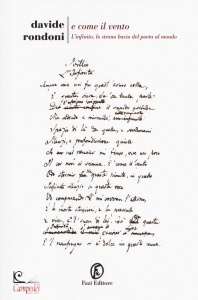 davide
rondoni
e come il vento
L'infinito, lo strano bacio del poeta al mondo
Idillio
L'Infinito
Sempre caro mi fu quest'ermo colle,
E questa siepe, che da tanta parte
Ma sedendo e mirando,
Spazio di là da quella, e sovrumani
Silenzi, e profondissima quiete
Io nel pensier mi fingo, ove per poco
Il cor non si spaura. E come il vento
Odo stormir tra queste piante, io quello
Infinito silenzio a questa voce
Vo comparando: e mi sovvien l'eterno,
E le morte stagioni, e la presente
E viva, e il suon di lei. Così tra questa
E 'l naufragar m'è dolce in questo mare.
Fazi Editore